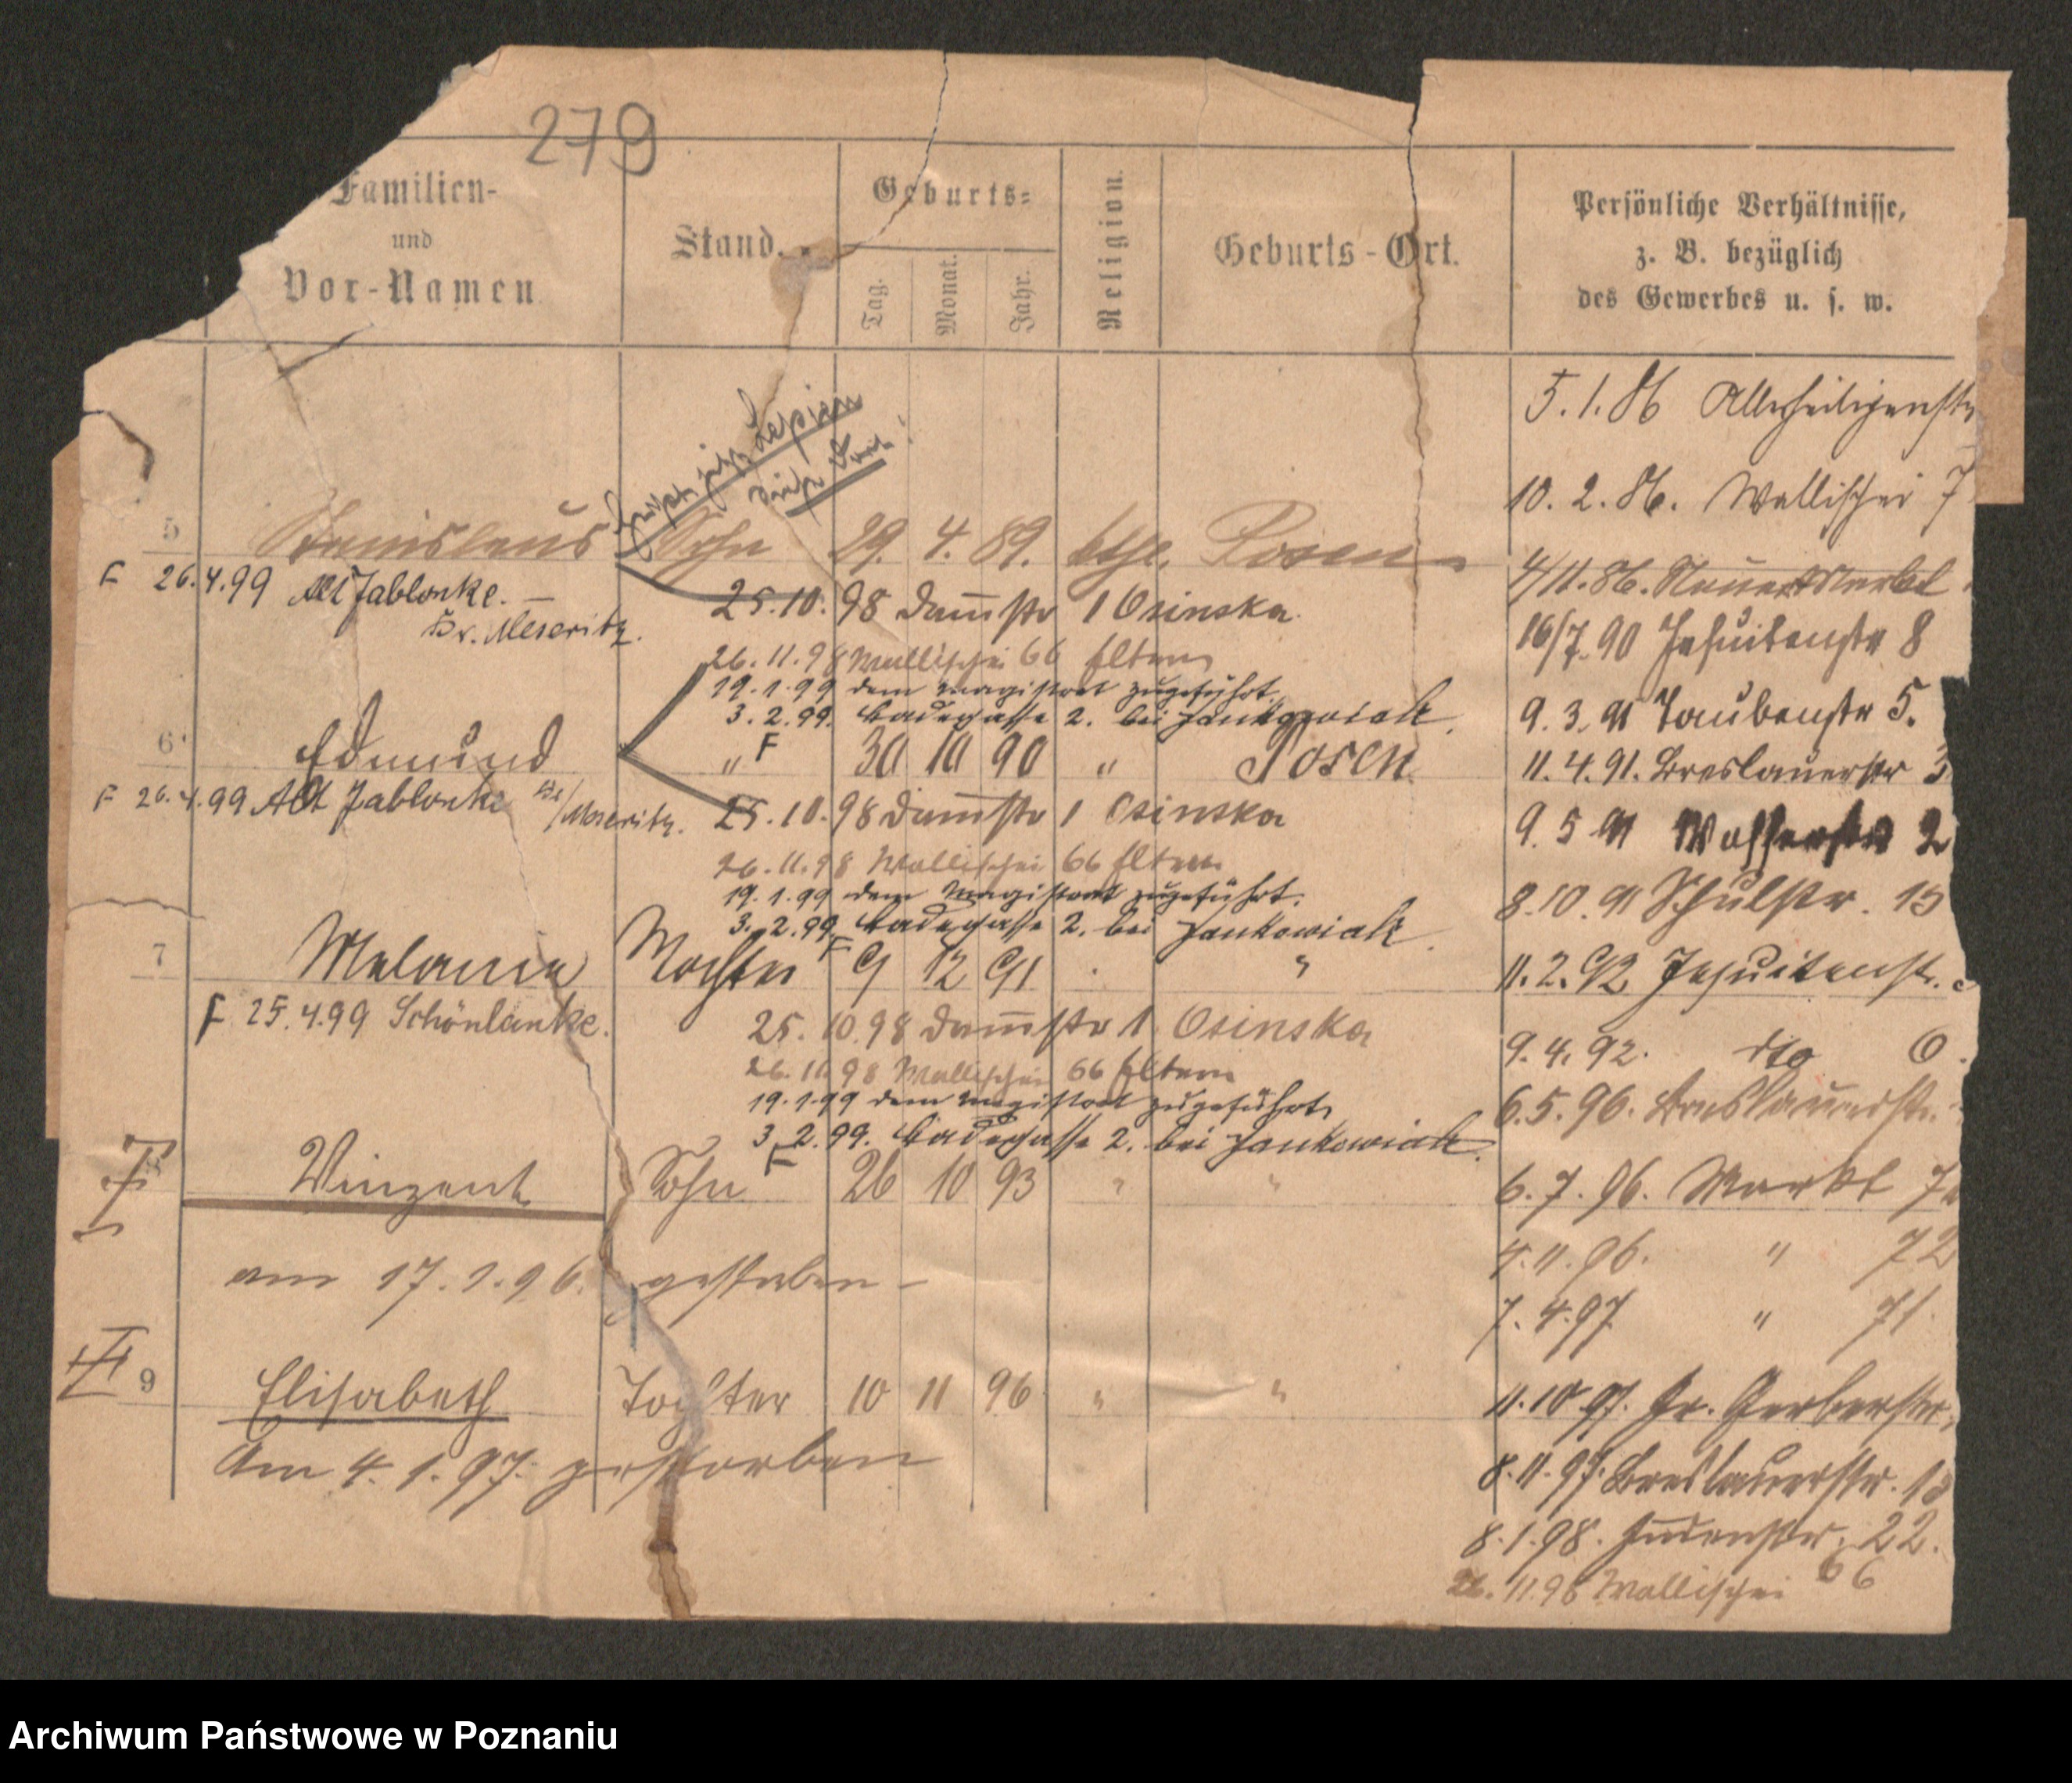 279
Familien-
und
Vor-Namen
Stand.
Geburts-
Tag.
Monat.
Jahr.
Religion.
Geburts-Ort.
Persönliche Verhältnisse,
z. B. bezüglich
des Gewerbes u. s. w.
5.1.86 Allerheiligenstr
10.2.86. Wallischei 7
5 Stanislaus Sohn 29. 4. 89. Posen
4/11.86.
F 26.4.99 Alt Jablonke. —
Kr. Meseritz.
25.10.98 Dam̄str 1 Osinska.
16/7.90 Jesuitenstr 8
26.11.98 Wallischei 66 Eltern
19.1.99 dem Magistrat zugeführt.
3.2.99. Badegasse 2. bei Jankowiak.
9.3.91 Taubenstr 5.
6 Edmund " F 30 10 90 " Posen
11.4.91. Breslauerstr
F 26.4.99 Alt Jablonke Kr/Meseritz.
25.10.98 Dam̄str 1 Osinska
9.5.91 Wasserstr 2
26.11.98 Wallischei 66 Eltern
19.1.99 dem Magistrat zugeführt.
3.2.99. Badegasse 2. bei Jankowiak.
8.10.91 Schulstr. 13
7 Melania Tochter F 9 12 91 "
11.2.92 Jesuitenstr.
F 25.4.99 Schönlanke.
25.10.98 Dam̄str 1 Osinska
9.4.92. dto
26.11.98 Wallischei 66 Eltern
19.1.99 dem Magistrat zugeführt
3.2.99. Badegasse 2. bei Jankowiak.
6.5.96. Breslauerstr.
Winzent Sohn F 26 10 93 " "
6.7.96. Markt
am 17.1.96. gestorben –
4.11.96. " 72
7.4.97 " 71
9 Elisabeth Tochter 10 11 96 " "
11.10.97. Gr. Gerberstr,
Am 4.1.97. gestorben
8.11.97. Breslauerstr.
8.1.98. Judenstr. 22.
26.11.98 Wallischei 66
Archiwum Państwowe w Poznaniu